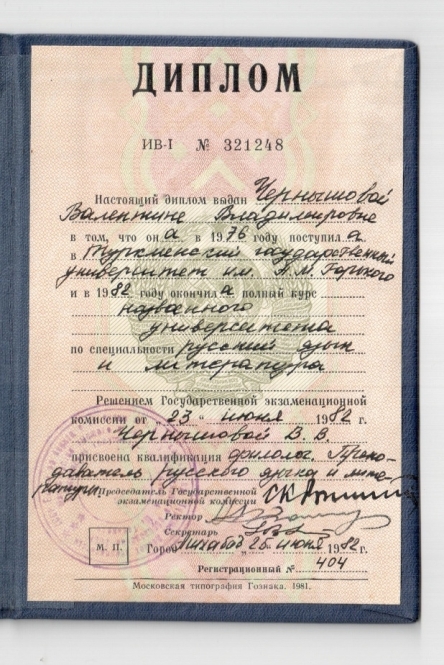 ДИПЛОМ
ИВ-I № 321248
Настоящий диплом выдан Чернышовой
Валентине Владимировне
в том, что она в 1976 году поступила
в Туркменский государственный
университет им. А. М. Горького
и в 1982 году окончила полный курс
названного
университета
по специальности русский язык
и литература
Решением Государственной экзаменационной
комиссии от "23" июня 1982 г.
Чернышовой В. В.
присвоена квалификация филолог. Препо-
даватель русского языка и лите-
ратуры
Председатель Государственной
экзаменационной комиссии
Ректор
Секретарь
М. П.
Город 25 июня 1982 г.
Регистрационный № 404
Московская типография Гознака. 1981.